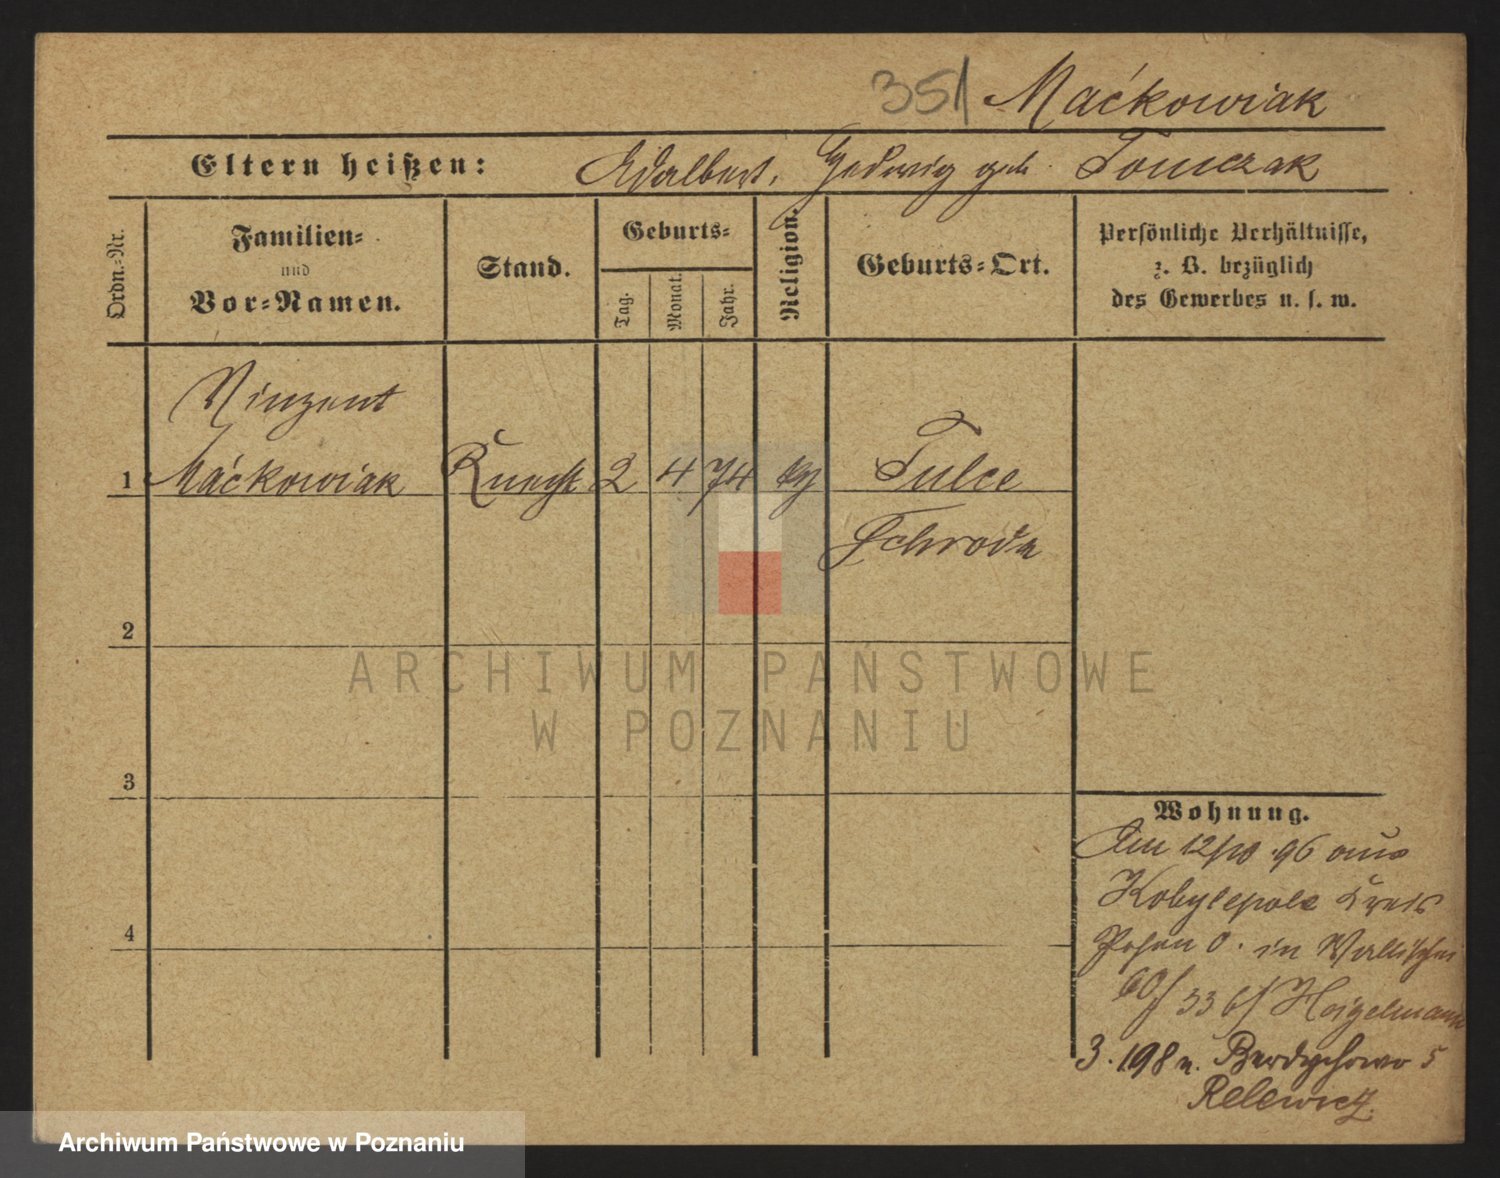 351 Maćkowiak
Eltern heißen: Adalbert, Hedwig geb. Tomczak
Ordn.-Nr.
Familien-
und
Vor-Namen.
Stand.
Geburts-
Tag.
Monat.
Jahr.
Religion.
Geburts-Ort.
Persönliche Verhältnisse,
z. B. bezüglich
des Gewerbes u. s. w.
Vinzent
1 Maćkowiak Knecht 2 4 74 Tulce
Schroda
2
3
4
Wohnung.
Am 12/10 .96 aus
Kobylepole Kreis
Posen O. in Wallischei
60/ 33 b/
3. 198 n. Berdychowo 5
Relewicz
ARCHIWUM PAŃSTWOWE
W POZNANIU
Archiwum Państwowe w Poznaniu